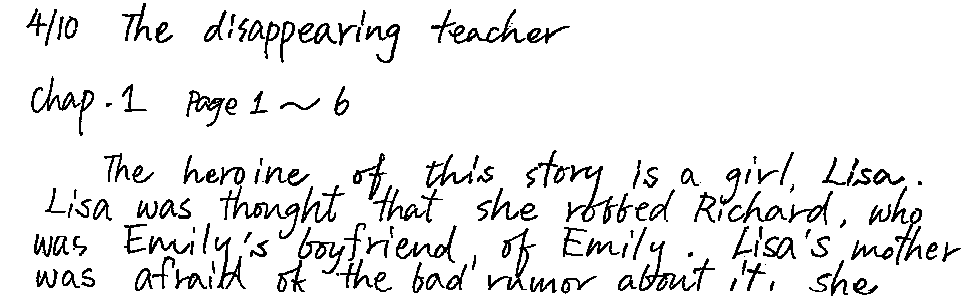 4/10 The disappearing teacher
Chap. 1 Page 1 ~ 6
The heroine of this story is a girl, Lisa.
Lisa was thought that she robbed Richard, who
was Emily's boyfriend, of Emily. Lisa's mother
was afraid of the bad rumor about it. she